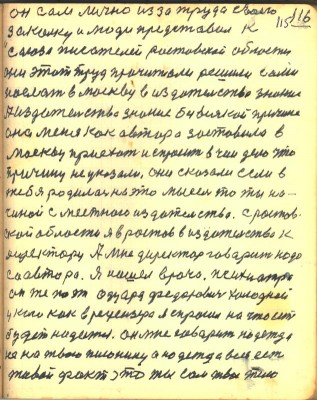 115 116
он сам лично из за труда своего
закалку и люди представил к
Союза писателей ростовской области
они этот труд прочитали решили сами
поехать в москву в издательство знание
А издательство знание без всякой причине
она меня как автора заставила в
Москву приехат и спросит в чем дело что
причину не указали, они сказали если в
тебя родилас на это мысел то ты на-
чиной с местного издательства. с ростов-
ской области я в ростов в издательства к
директору А мне директор говорит надо
соавтора. Я нашел врача. психиатра
он же поэт Эдуард федорович Холодной
у кого как в рецензора я спросил на что ест
будет надеятся. он мне говарит надежда
на твою тисо надежда вся ест
живой факт это ты сам твое тело